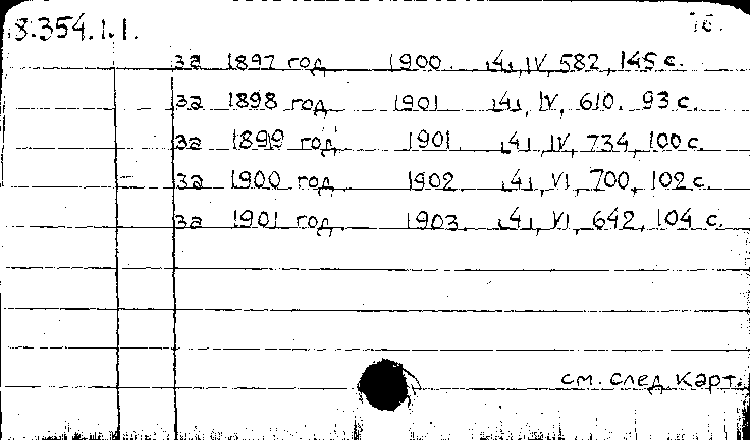 8.354.1.1.
за 1897 год 1900. [4], IV, 582, 145 с.
за 1898 год 1901 [4], IV, 610. 93 с.
за 1899 год 1901 [4], IV, 734, 100 с.
за 1900 год. 1902. [4], VI, 700, 102 с.
за 1901 год. 1903. [4], VI, 642, 104 с.
см. след карт.